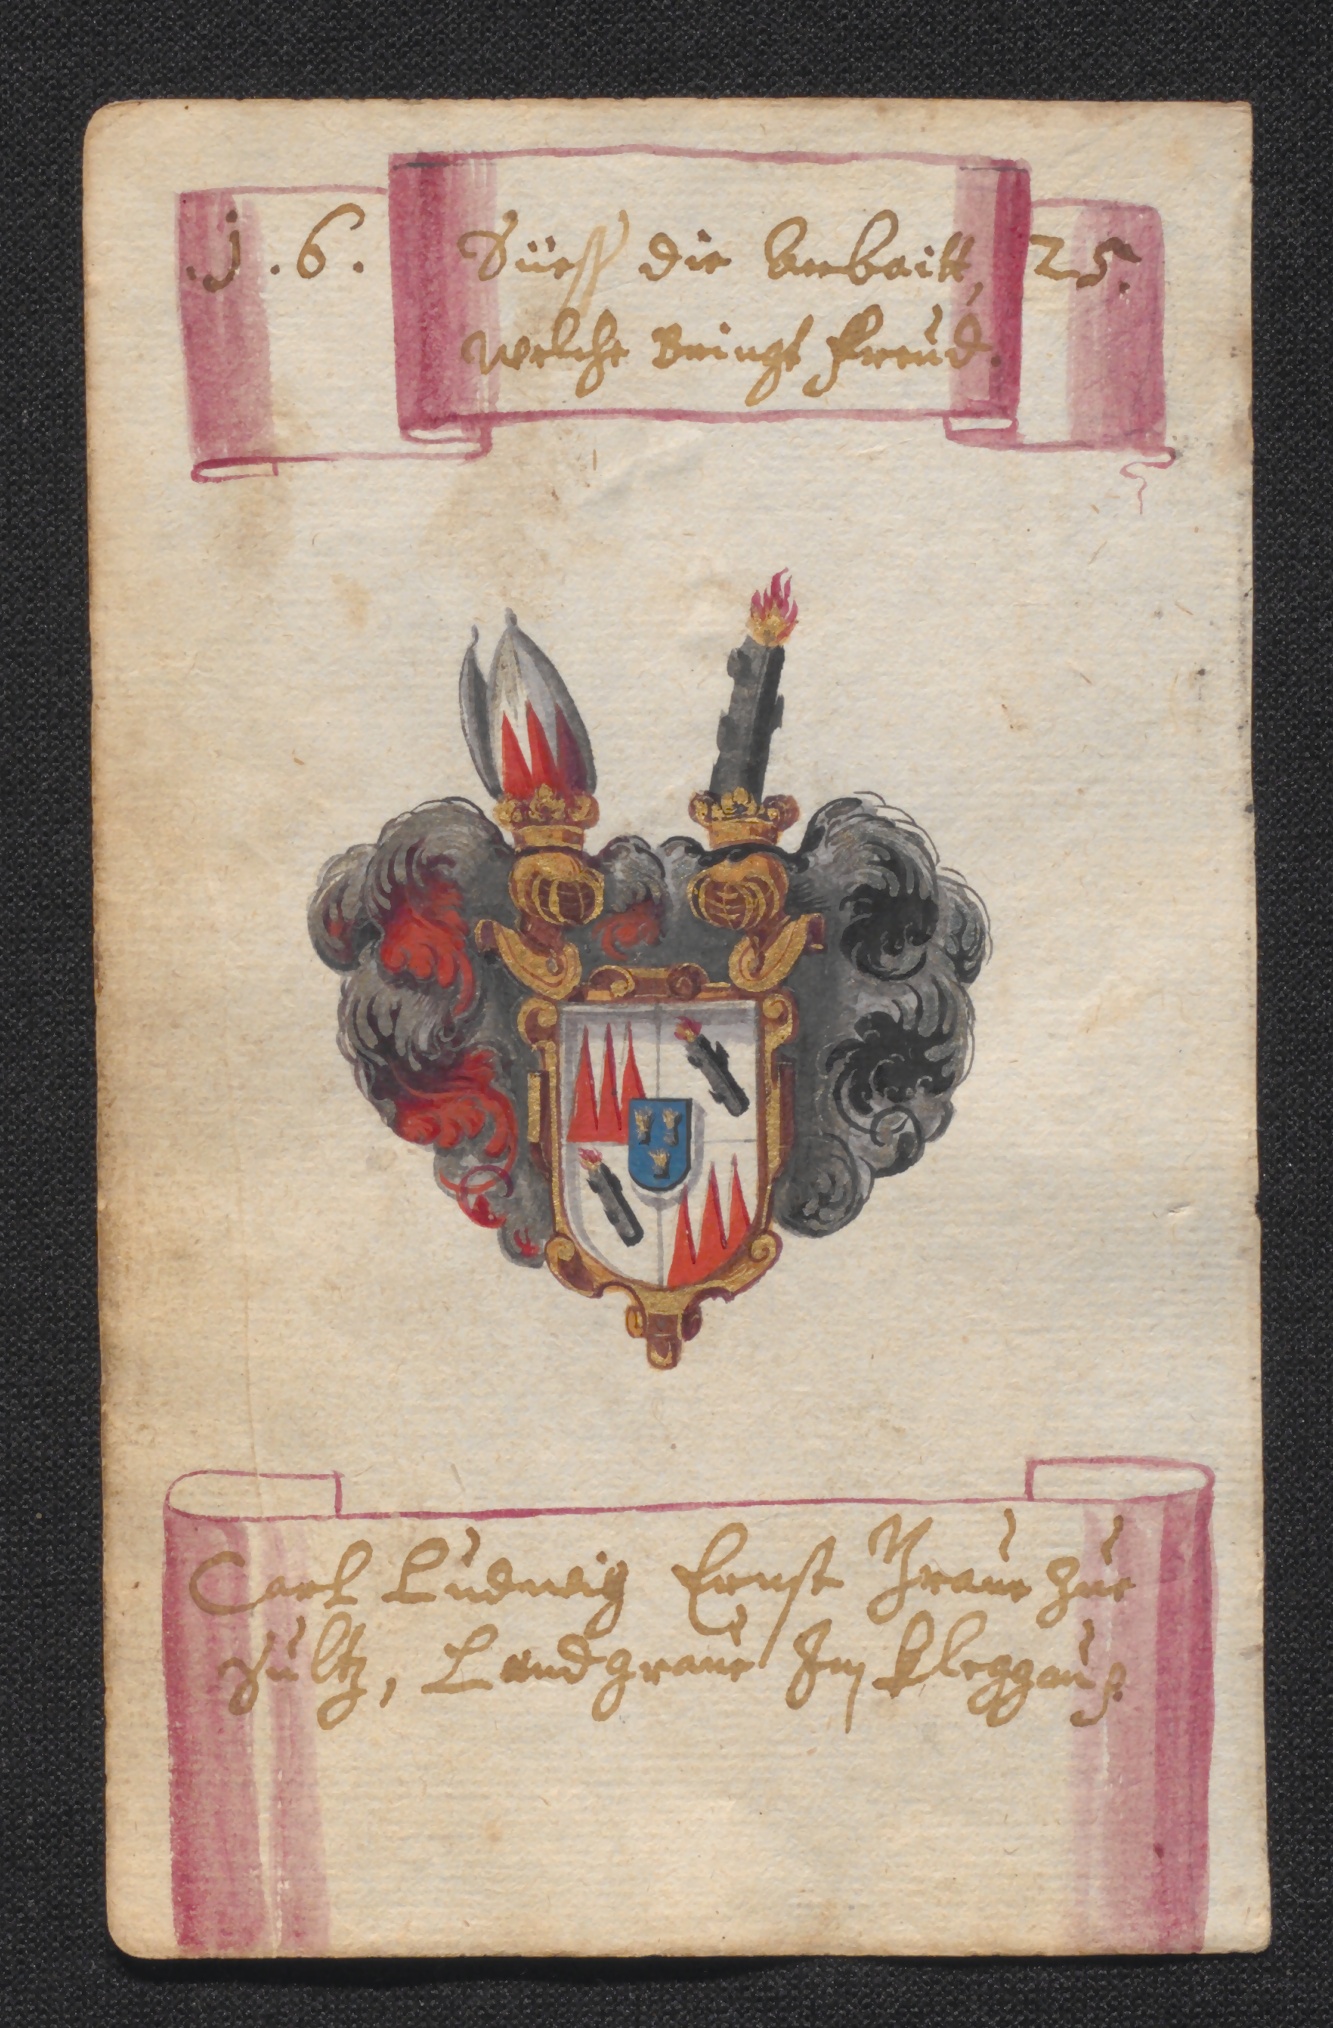 .j.6. Süess die Arbaitt, 25.
welche Bringt freud.
Carl Ludwig Ernst Graue zue
Sultz, Landgraue Im Kleggau p.